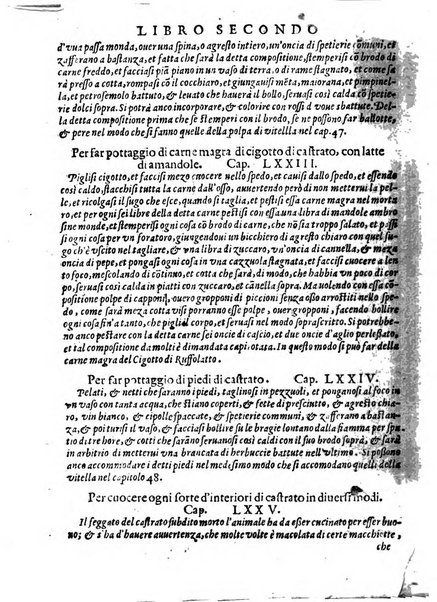 LIBRO SECONDO
d'vua passa monda, ouer vna spina, o agresto intiero, vn'oncia di spetierie cõmuni, et
zafferano a bastanza, et fatta che sarà la detta compositione, stemperisi cõ brodo di
carne freddo, et facciasi più piano in vn vaso di terra, o di rame stagnato, et come sa
rà presso a cotta, rompasi cõ il cocchiaro, et giungauisi menta, maiorana, pimpinel
la, et petrosemolo battuto, & leuato che hauerà il bollo, seruasi così calda cõ spetie
rie dolci sopra. Si potrà anco incorporare, & colorire con rossi d'voua sbattute. Del
la detta compositione prima che si stemperi con il brodo, se ne possono far ballotte,
& pere nel modo che si fanno quelle della polpa di vitella nel cap. 47.
Per far pottaggio di carne magra di cigotto di castrato, con latte
di amandole. Cap. LXXIII.
Piglisi cigotto, et facciasi mezo cuocere nello spedo, et cauisi dallo spedo, et essendo
così caldo, stacchisi tutta la carne dall'osso, auuertendo però di non metterui la pel
le, et ricolgasi il sugo che esce, quando si taglia, et pestisi essa carne magra nel morta
ro, et per ogni sei libre della detta carne pestisi con essa vna libra di mandole ambro
sine monde, et stemperisi ogni cosa con brodo di carne, che nõ sia troppo salato, et passi
si ogni cosa per vn foratoro, giungendoui vn bicchiero di agresto chiaro con quel su
go ch'è vscito nel tagliare, & vna libra di zuccaro, vn'oncia di cannella, & meza
oncia di pepe, et pongasi ogni cosa in vna cazzuola stagnata, et facciasi cuocere a len
to foco, mescolando di cõtinuo, et cotta che sarà, di modo, che habbia vn poco di cor
po, seruasi così calda in piatti con zuccaro, et cãnella sopra. Ma volendo con essa cõ
positione polpe di capponi, ouero gropponi di piccioni senza osso arrostiti nello spe
do, come sarà meza cotta visi porranno esse polpe, ouer gropponi, facendo bollire
ogni cosa fin'a tanto, che pigli el corpo, et seruasi nel modo soprascritto. Si potrebbe-
no anco pestare con la detta carne sei oncie di cascio, et due oncie d'aglio perlessato,
et tal compositione da molti è dimandata capirotata. In questo modo si può far della
carne magra del Cigotto di Ruffolatto.
Per far pottaggio di piedi di castrato. Cap. LXXIV.
Pelati, & netti che saranno i piedi, taglinosi in pezzuoli, et ponganosi al foco in
vn vaso con tanta acqua, che stiano coperti, & con fette di presciutto, & agresto chia
ro, vin bianco, et cipolle spaccate, & spetierie communi, & zafferano a bastan-
za, & poi turisi il vaso, & facciasi bollire su le bragie lontano dalla fiamma per spa-
tio di tre hore, & cotti che sarãno seruanosi così caldi con il suo brodo sopra, & sarà
in arbitrio di metterui vna brancata di herbuccie battute nell'vltimo. Si possono
anco accommodare i detti piedi nel medesimo modo che si accommodano quelli della
vitella nel capitolo 48.
Per cuocere ogni sorte d'interiori di castrato in diuersi modi.
Cap. LXXV.
Il feggato del castrato subdito morto l'animale ha da esser cucinato per esser buo
no; & s'ha d'hauere auuertenza, che molte volte è macolata di certe macchiette,
che